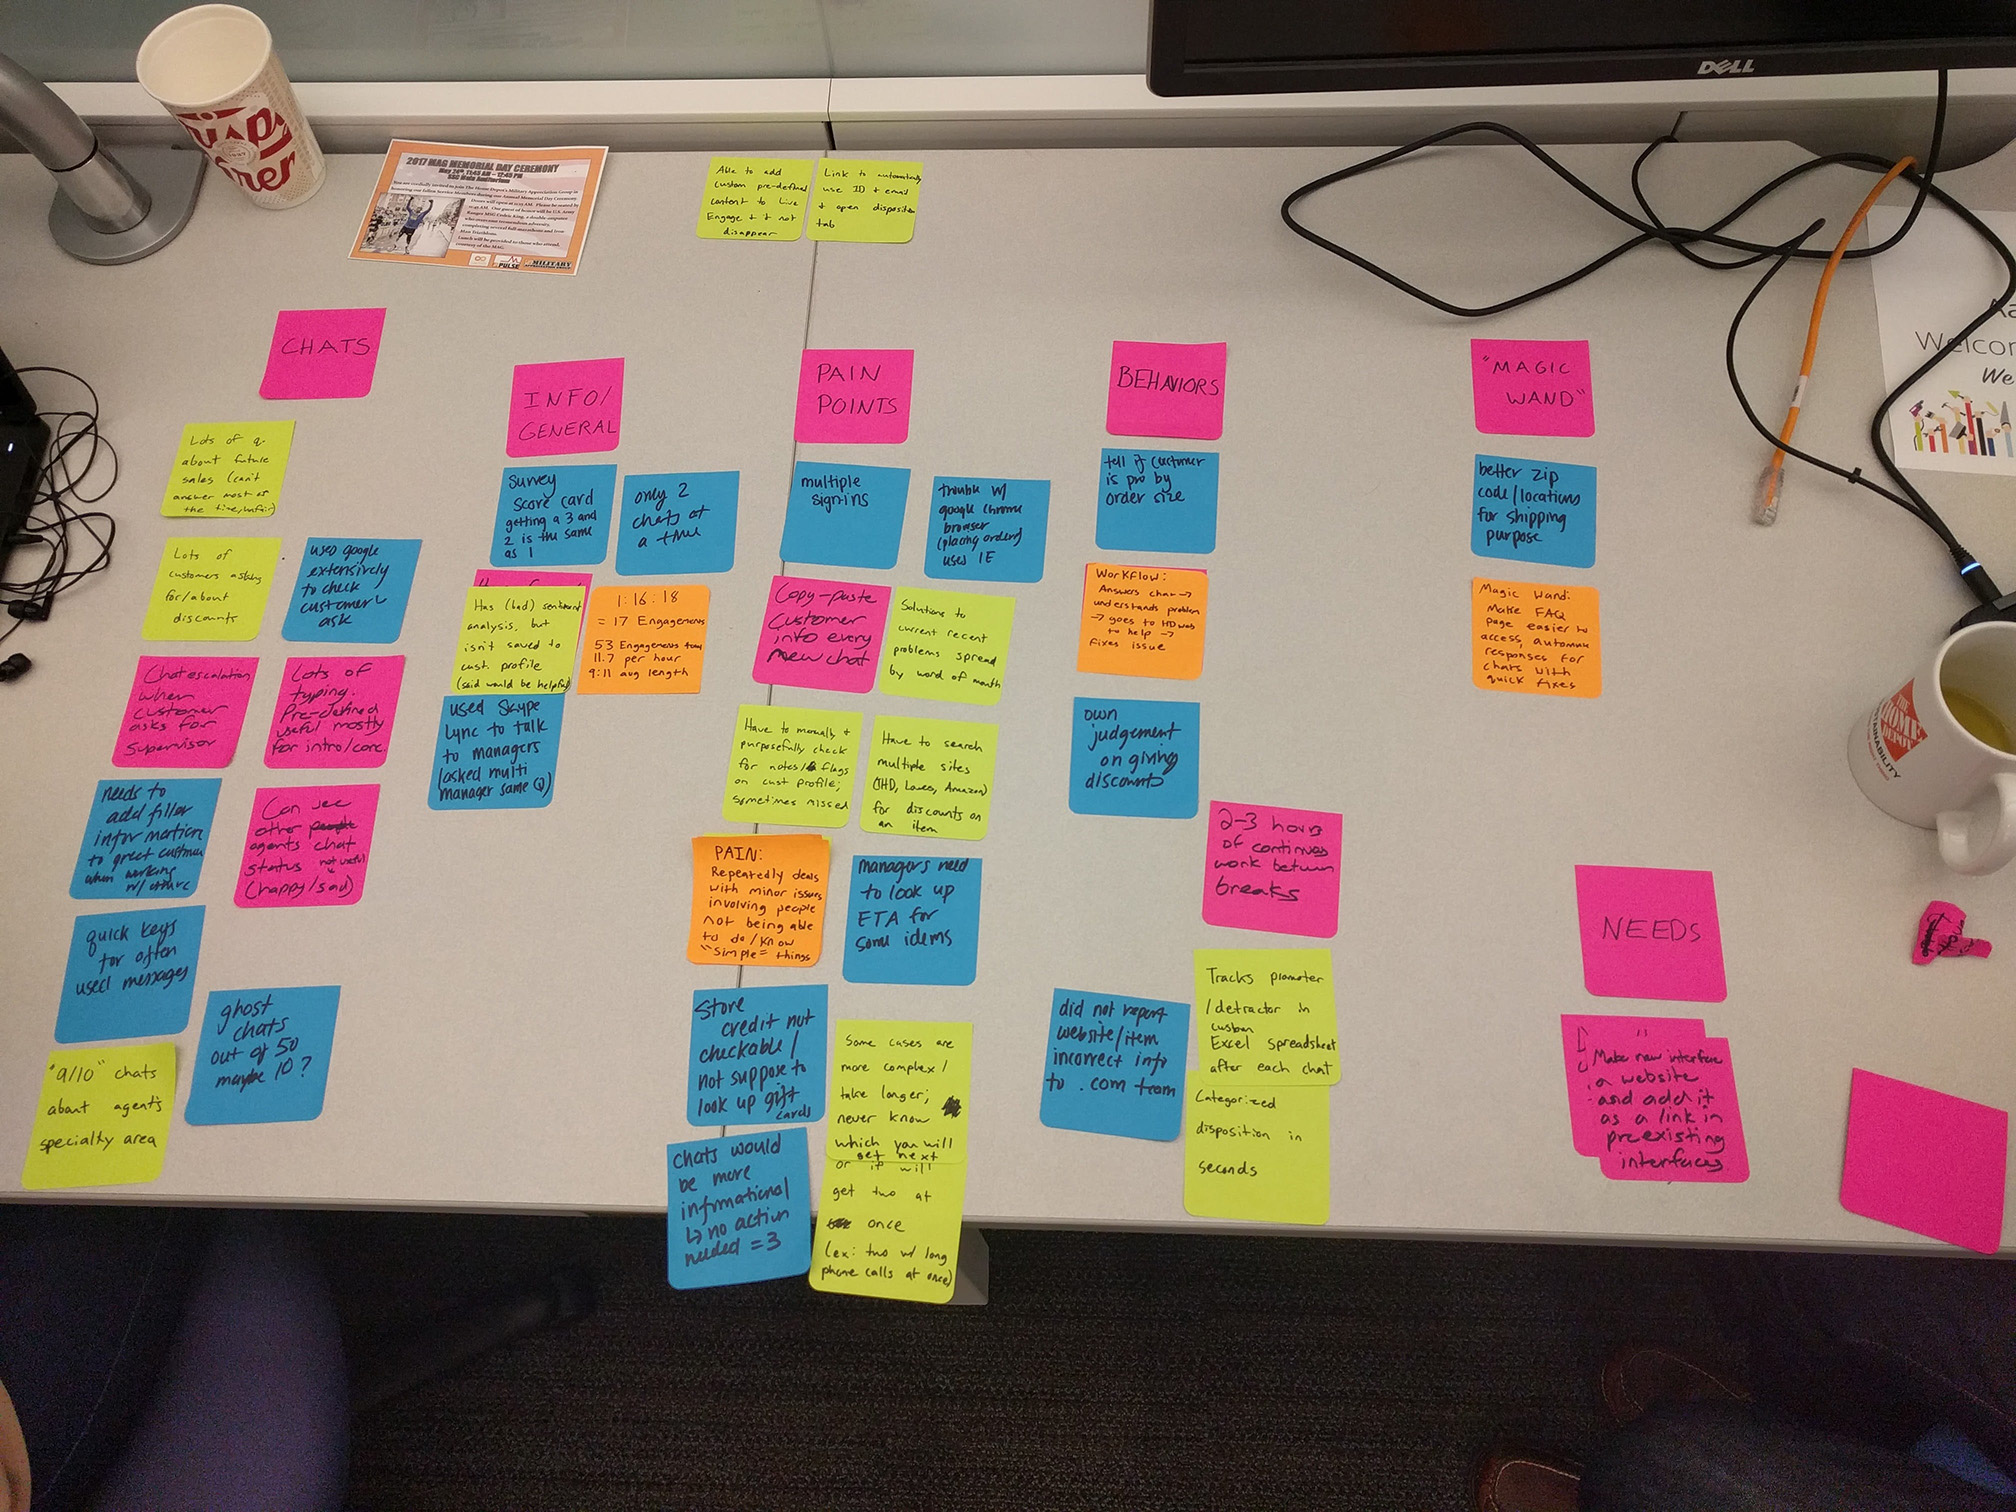 DELL
2017 MAG MEMORIAL DAY CEREMONY
May 24th, 11:45 AM - 12:45 PM
SSC Main Auditorium
PULSE
MILITARY
Able to add
custom pre-defined
content to Live
Engage + it not
disappear
Link to automatically
use ID + email
+ open disposition
tab
CHATS
Lots of q.
about future
sales (can't
answer most of
the time/unfair)
Lots of
customers asking
for/about
discounts
used google
extensively
to check
customer
ask
Chat escalation
when
customer
asks for
supervisor
Lots of
typing.
Pre-defined
useful mostly
for intro/conc.
needs to
add filler
information
to greet customer
when working
w/ others
Can see
other
agents chat
status not useful
(happy/sad)
quick keys
for often
used messages
ghost
chats
out of 50
maybe 10?
"9/10" chats
about agent's
specialty area
INFO/
GENERAL
survey
score card
getting a 3 and
2 is the same
as 1
only 2
chats at
a time
Has (bad) sentiment
analysis, but
isn't saved to
cust. profile
(said would be helpful)
1:16:18
= 17 Engagements
53 Engagements
11.7 per hour
9:11 avg length
used Skype
Lync to talk
to managers
(asked multi
manager same Q)
PAIN
POINTS
multiple
sign-ins
trouble w/
google chrome
browser
(placing orders)
uses IE
Copy-paste
customer
info every
new chat
Solutions to
current recent
problems spread
by word of mouth
Have to manually +
purposefully check
for notes/flags
on cust profile;
sometimes missed
Have to search
multiple sites
(THD, Lowes, Amazon)
for discounts on
an item
PAIN:
Repeatedly deals
with minor issues
involving people
not being able
to do/know
"simple" things
managers need
to look up
ETA for
some idems
Store
credit not
checkable/
not suppose to
look up gift
cards
Some cases are
more complex/
take longer;
never know
which you will
get next
or if will
get two at
once
(ex: two w/ long
phone calls at once)
chats would
be more
informational
↳ no action
needed = 3
BEHAVIORS
tell if customer
is pro by
order size
Workflow:
Answers chat →
understands problem
→ goes to HD web
to help →
fixes issue
own
judgement
on giving
discounts
2-3 hours
of continues
work between
breaks
did not report
website/item
incorrect info
to .com team
Tracks promoter
/detractor in
custom
Excel spreadsheet
after each chat
Categorized
disposition in
seconds
"MAGIC
WAND"
better zip
code/locations
for shipping
purpose
Magic Wand:
Make FAQ
page easier to
access, automate
responses for
chats with
quick fixes
NEEDS
Make new interface
a website
and add it
as a link in
preexisting
interfaces
THE
HOME
DEPOT